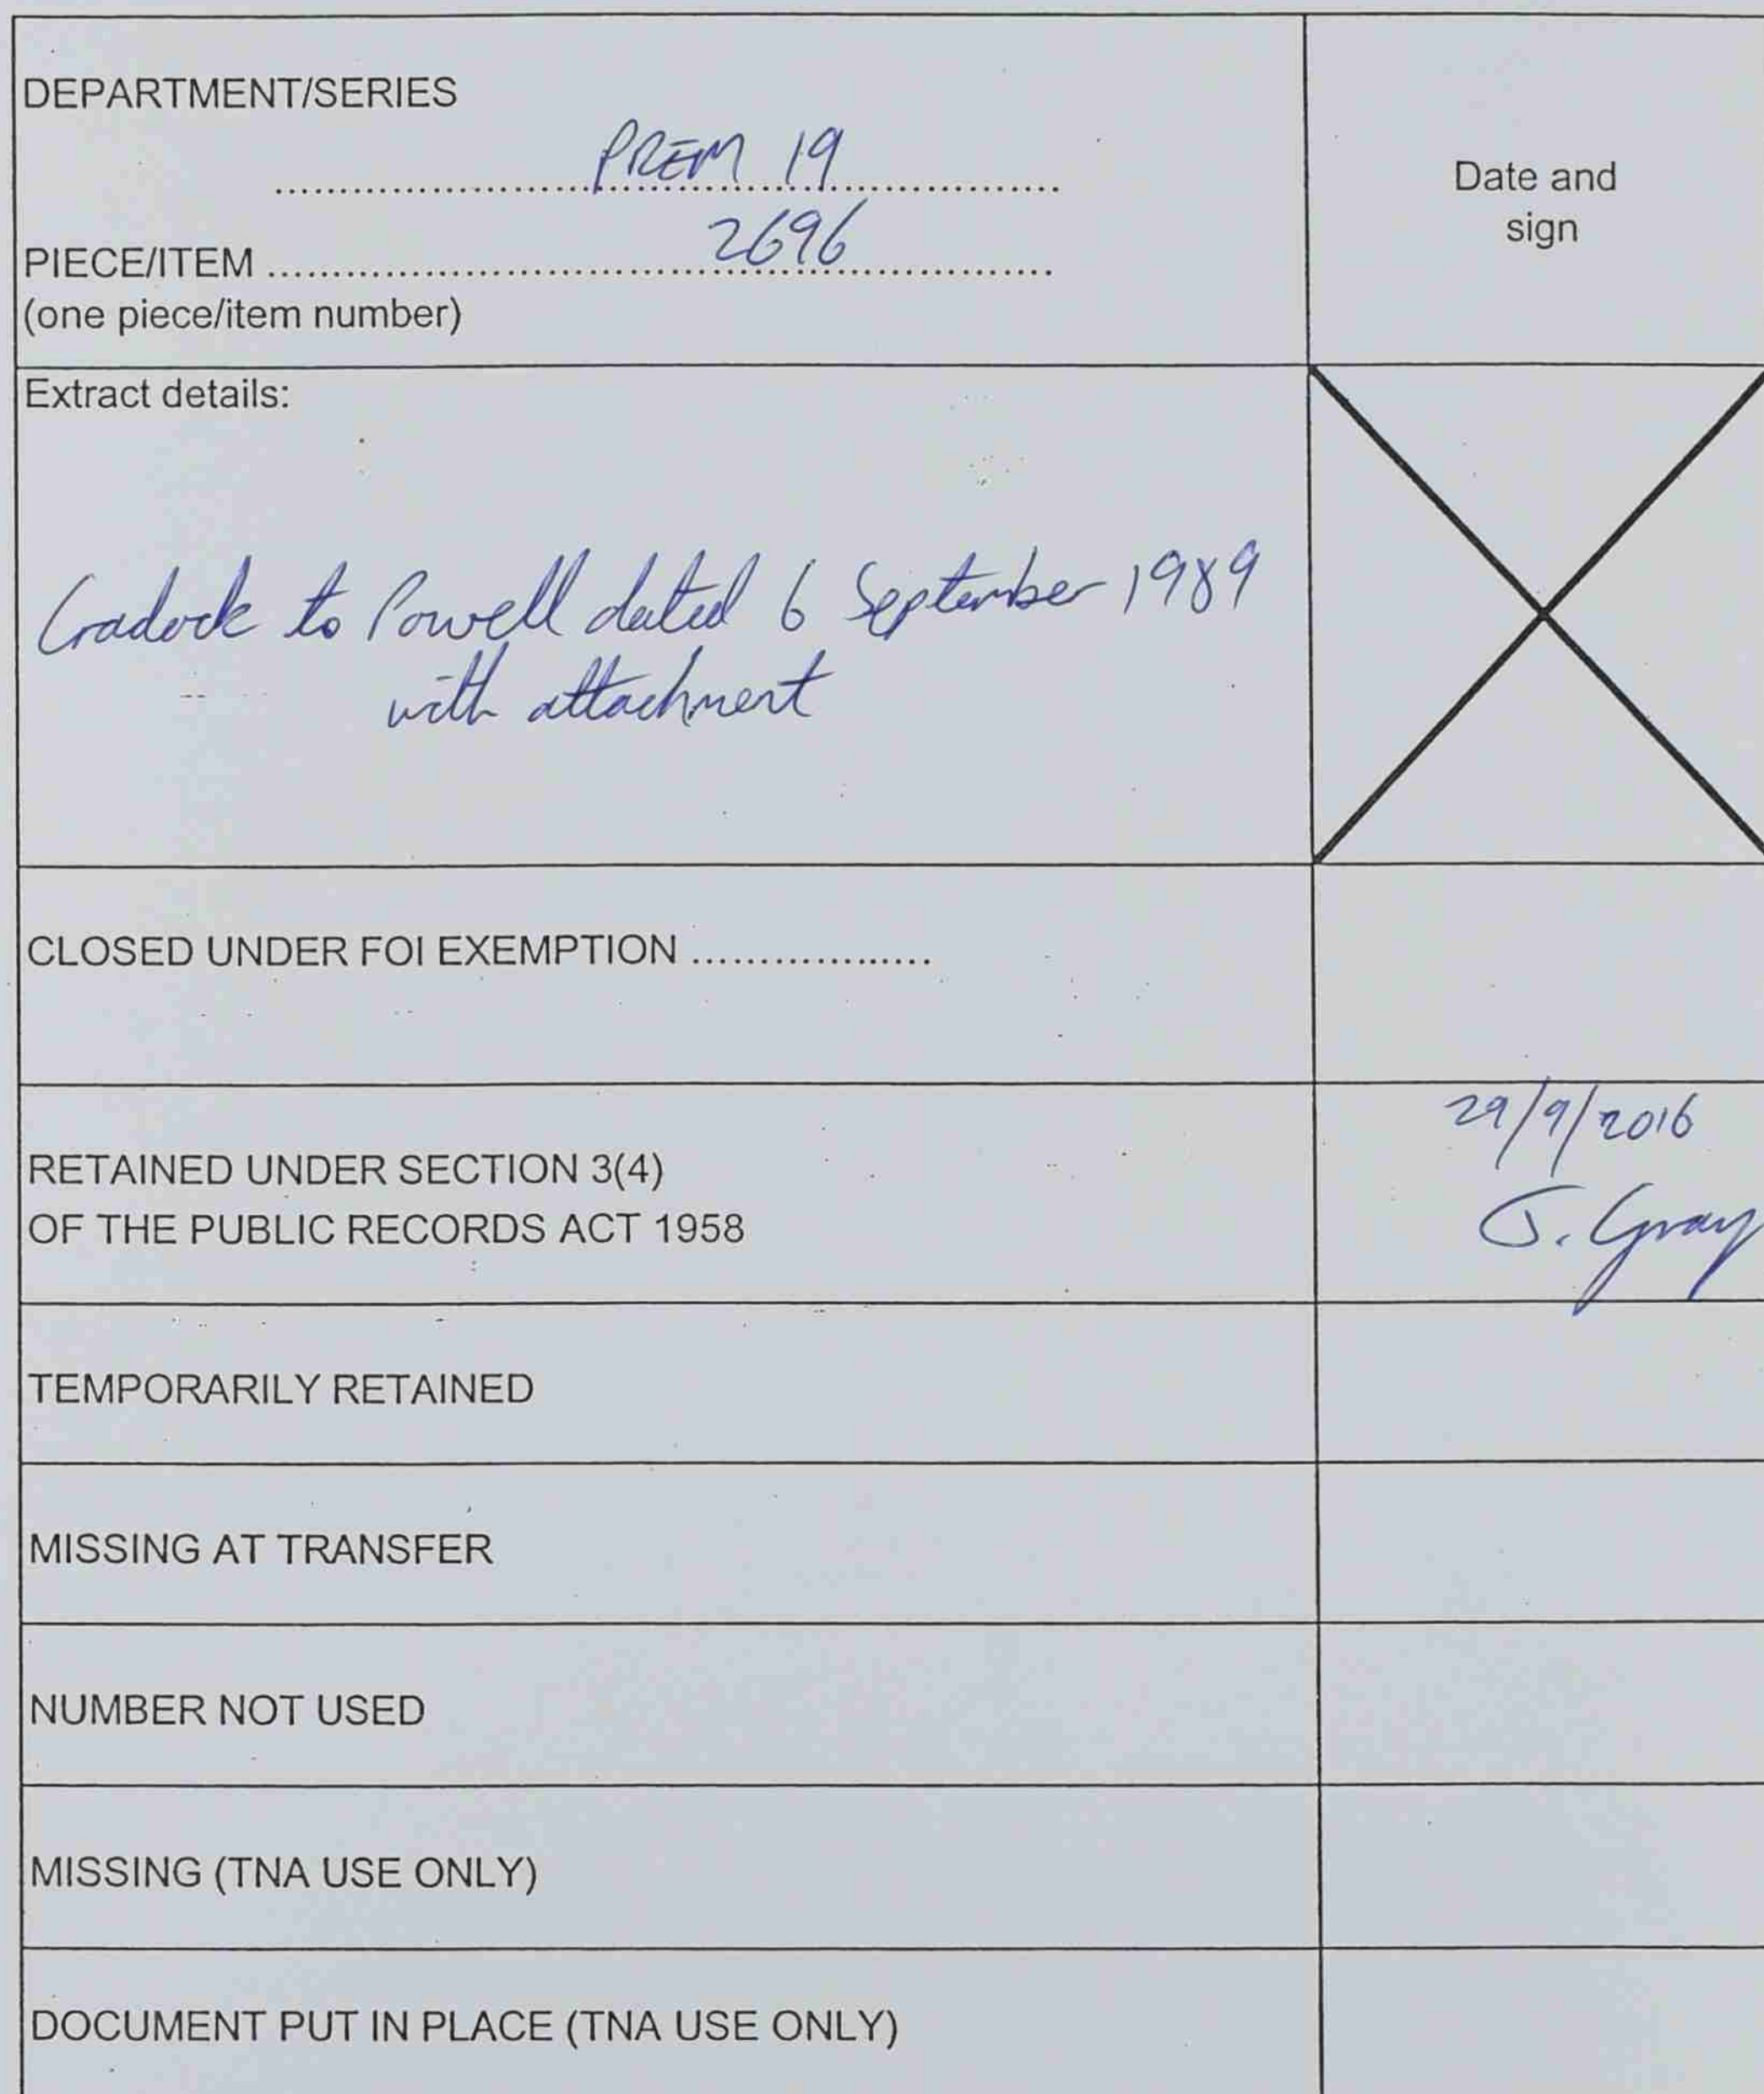 DEPARTMENT/SERIES
PREM 19
Date and
sign
PIECE/ITEM 2696
(one piece/item number)
Extract details:
Cradock to Powell dated 6 September 1989
with attachment
CLOSED UNDER FOI EXEMPTION ..................
RETAINED UNDER SECTION 3(4)
OF THE PUBLIC RECORDS ACT 1958
29/9/2016
J. Gray
TEMPORARILY RETAINED
MISSING AT TRANSFER
NUMBER NOT USED
MISSING (TNA USE ONLY)
DOCUMENT PUT IN PLACE (TNA USE ONLY)